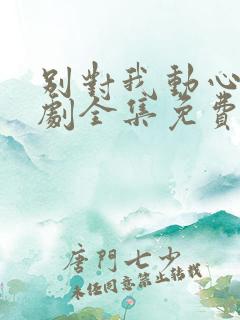 別對我動心
劇全集免費
唐門七少
未經同意禁止轉載